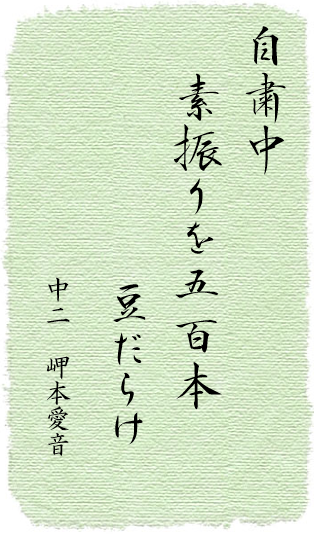 自粛中
素振りを五百本
豆だらけ
中二 岬本愛音